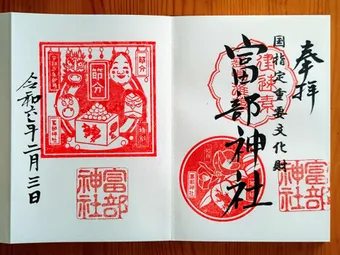 奉拝
国指定重要文化財
富部神社
富部
神社
節分
令和六年二月三日
富部
神社